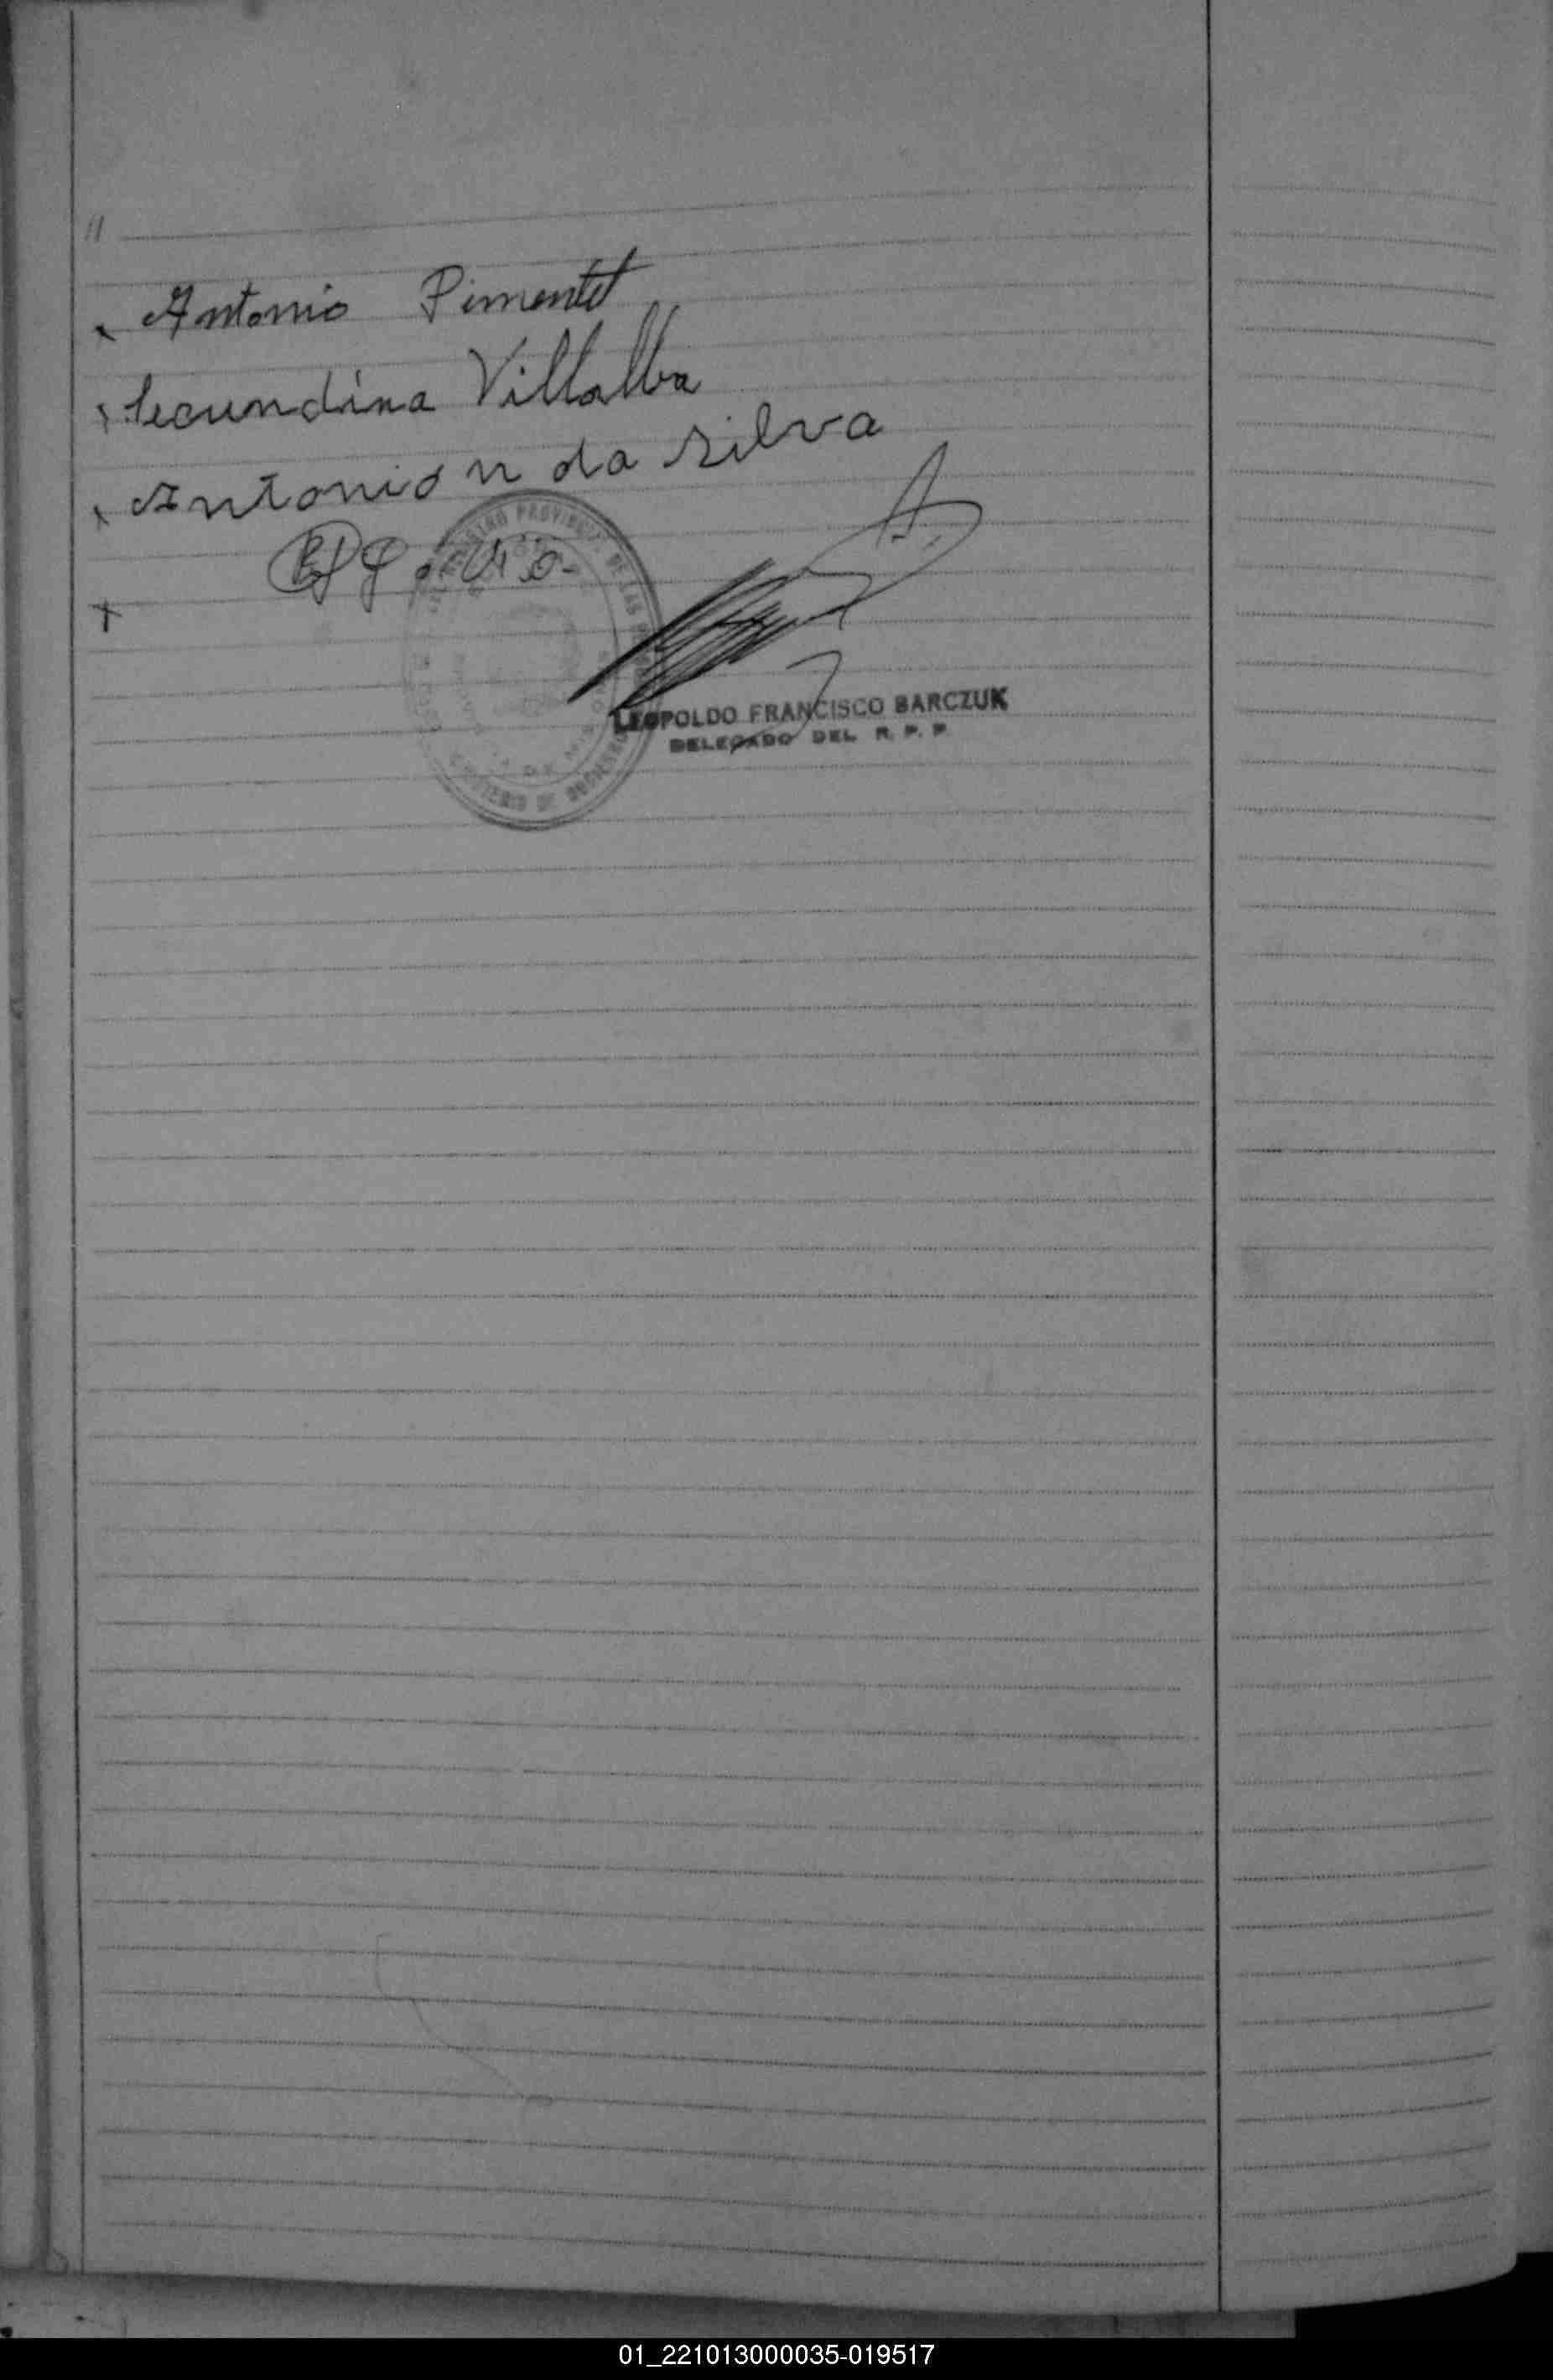 11
Antonio Pimentel
Secundina Villalba
Antonio n da silva
REGISTRO PROVINCIAL DE LAS
MINISTERIO DE GOBIERNO
LEOPOLDO FRANCISCO BARCZUK
DELEGADO DEL R. P. P
01_221013000035-019517